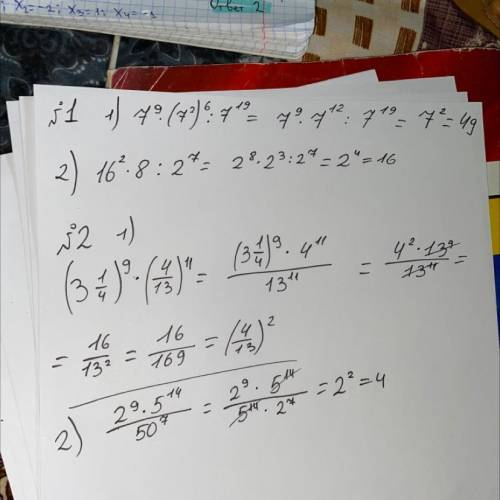 ; x₃=-2; x₃=1; x₄=-1
Ответ 2
№1 1) 7⁹·(7²)⁶:7¹⁹= 7⁹·7¹²:7¹⁹= 7²=49
2) 16²·8:2⁷= 2⁸·2³:2⁷=2⁴=16
№2 1)
(3 1/4)⁹·(4/13)¹¹= (3 1/4)⁹·4¹¹/13¹¹ = 4²·13⁹/13¹¹ =
= 16/13² = 16/169 = (4/13)²
2) 2⁹·5¹⁴/50⁷ = 2⁹·5¹⁴/5¹⁴·2⁷ = 2² = 4